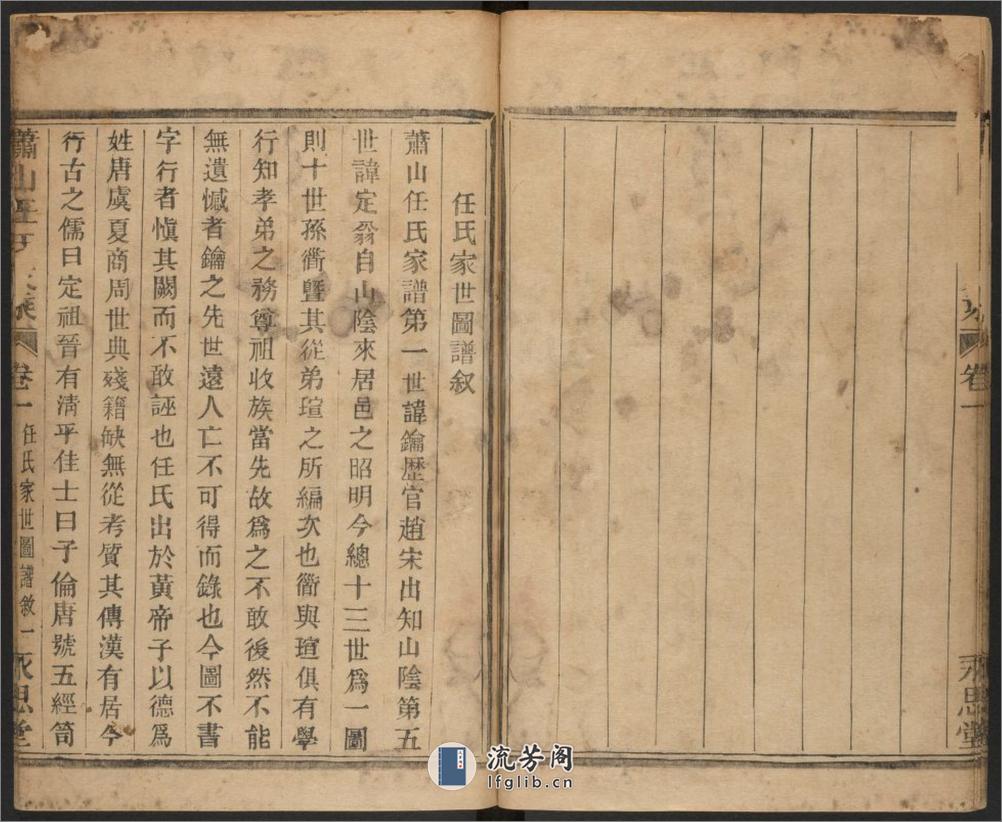 卷一
永思堂
任氏家世圖譜叙
蕭山任氏家譜第一世諱鑰歷官趙宋出知山陰第五
世諱定翁自山陰來居邑之昭明今總十三世爲一圖
則十世孫衢曁其從弟瑄之所編次也衢與瑄俱有學
行知孝弟之務尊祖收族當先故爲之不敢後然不能
無遺憾者鑰之先世遠人亡不可得而錄也今圖不書
字行者愼其闕而不敢誣也任氏出於黃帝子以德爲
姓唐虞夏商周世典殘籍缺無從考質其傳漢有居今
行古之儒曰定祖晉有淸平佳士曰子倫唐號五經笥
蕭山任氏家乘 卷一 任氏家世圖譜敘 一 永思堂
流芳阁
lfglib.cn